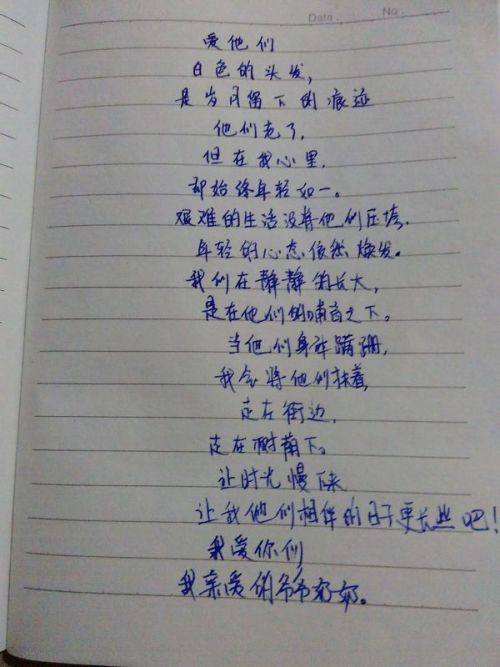 Data. No.
爱他们
白色的头发,
是岁月留下的痕迹
他们老了,
但在我心里,
却始终年轻如一。
艰难的生活没将他们压垮,
年轻的心态依然焕发。
我们在静静的长大,
是在他们的哺育之下。
当他们身躯蹒跚,
我会将他们扶着,
走在街边,
走在树荫下。
让时光慢下来
让我他们相伴的日子更长些吧!
我爱你们
我亲爱的爷爷奶奶。